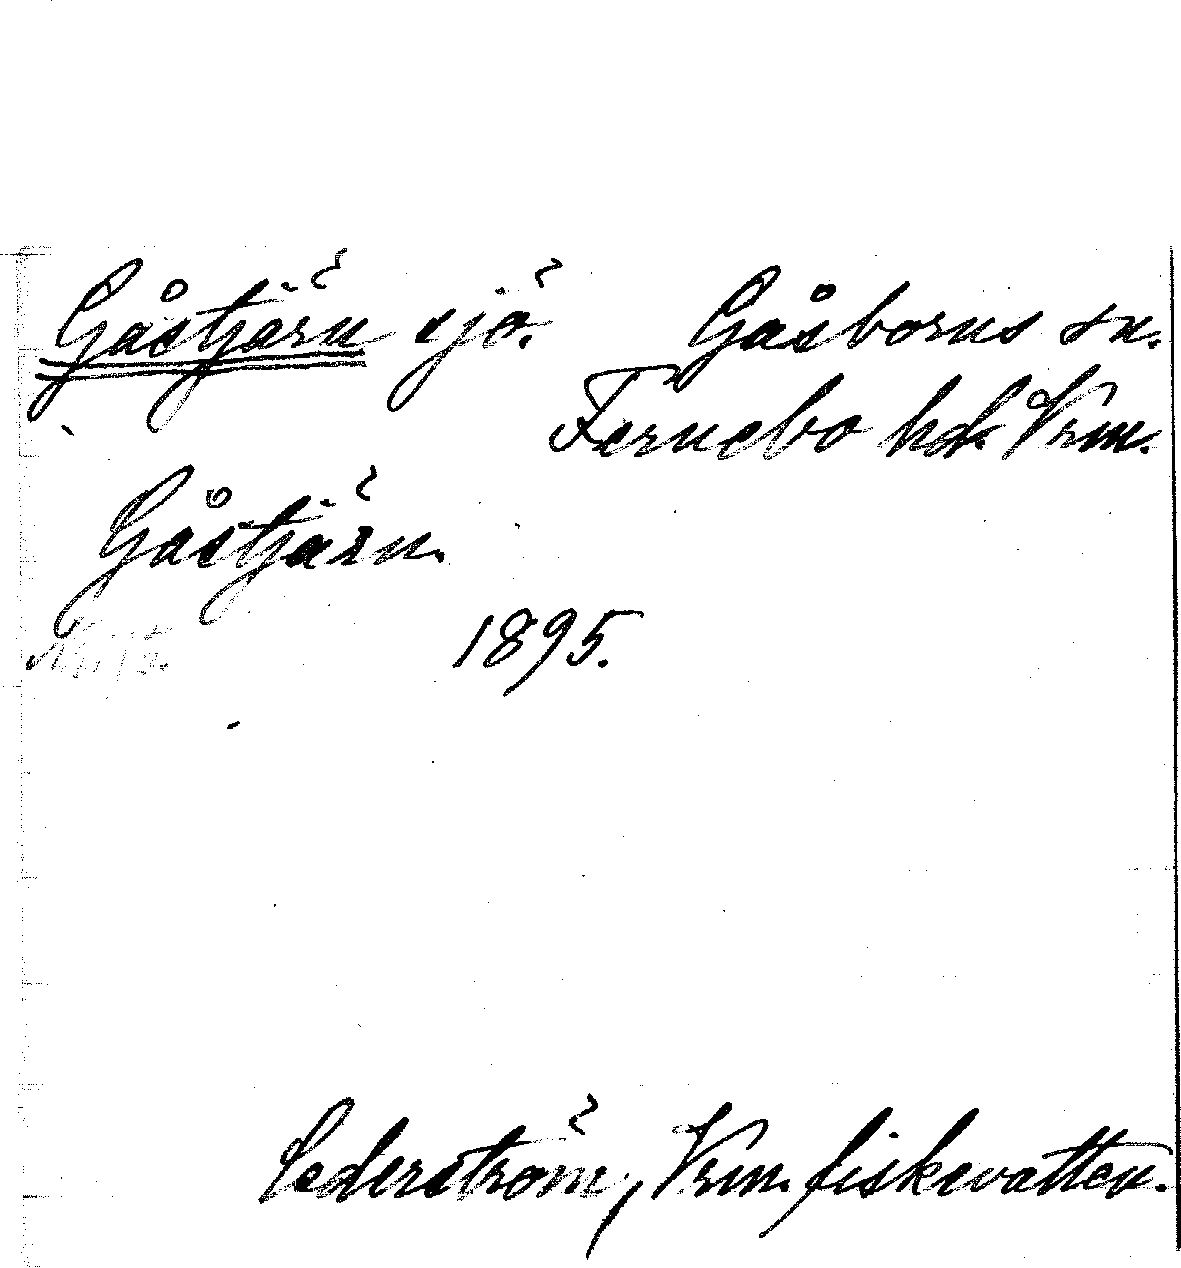 Gåstjärn sjö. Gåsborns sn.
Fernebo hd. Vrm.
Gåstjärn.
1895.
Cederström, Vrm. fiskevatten.